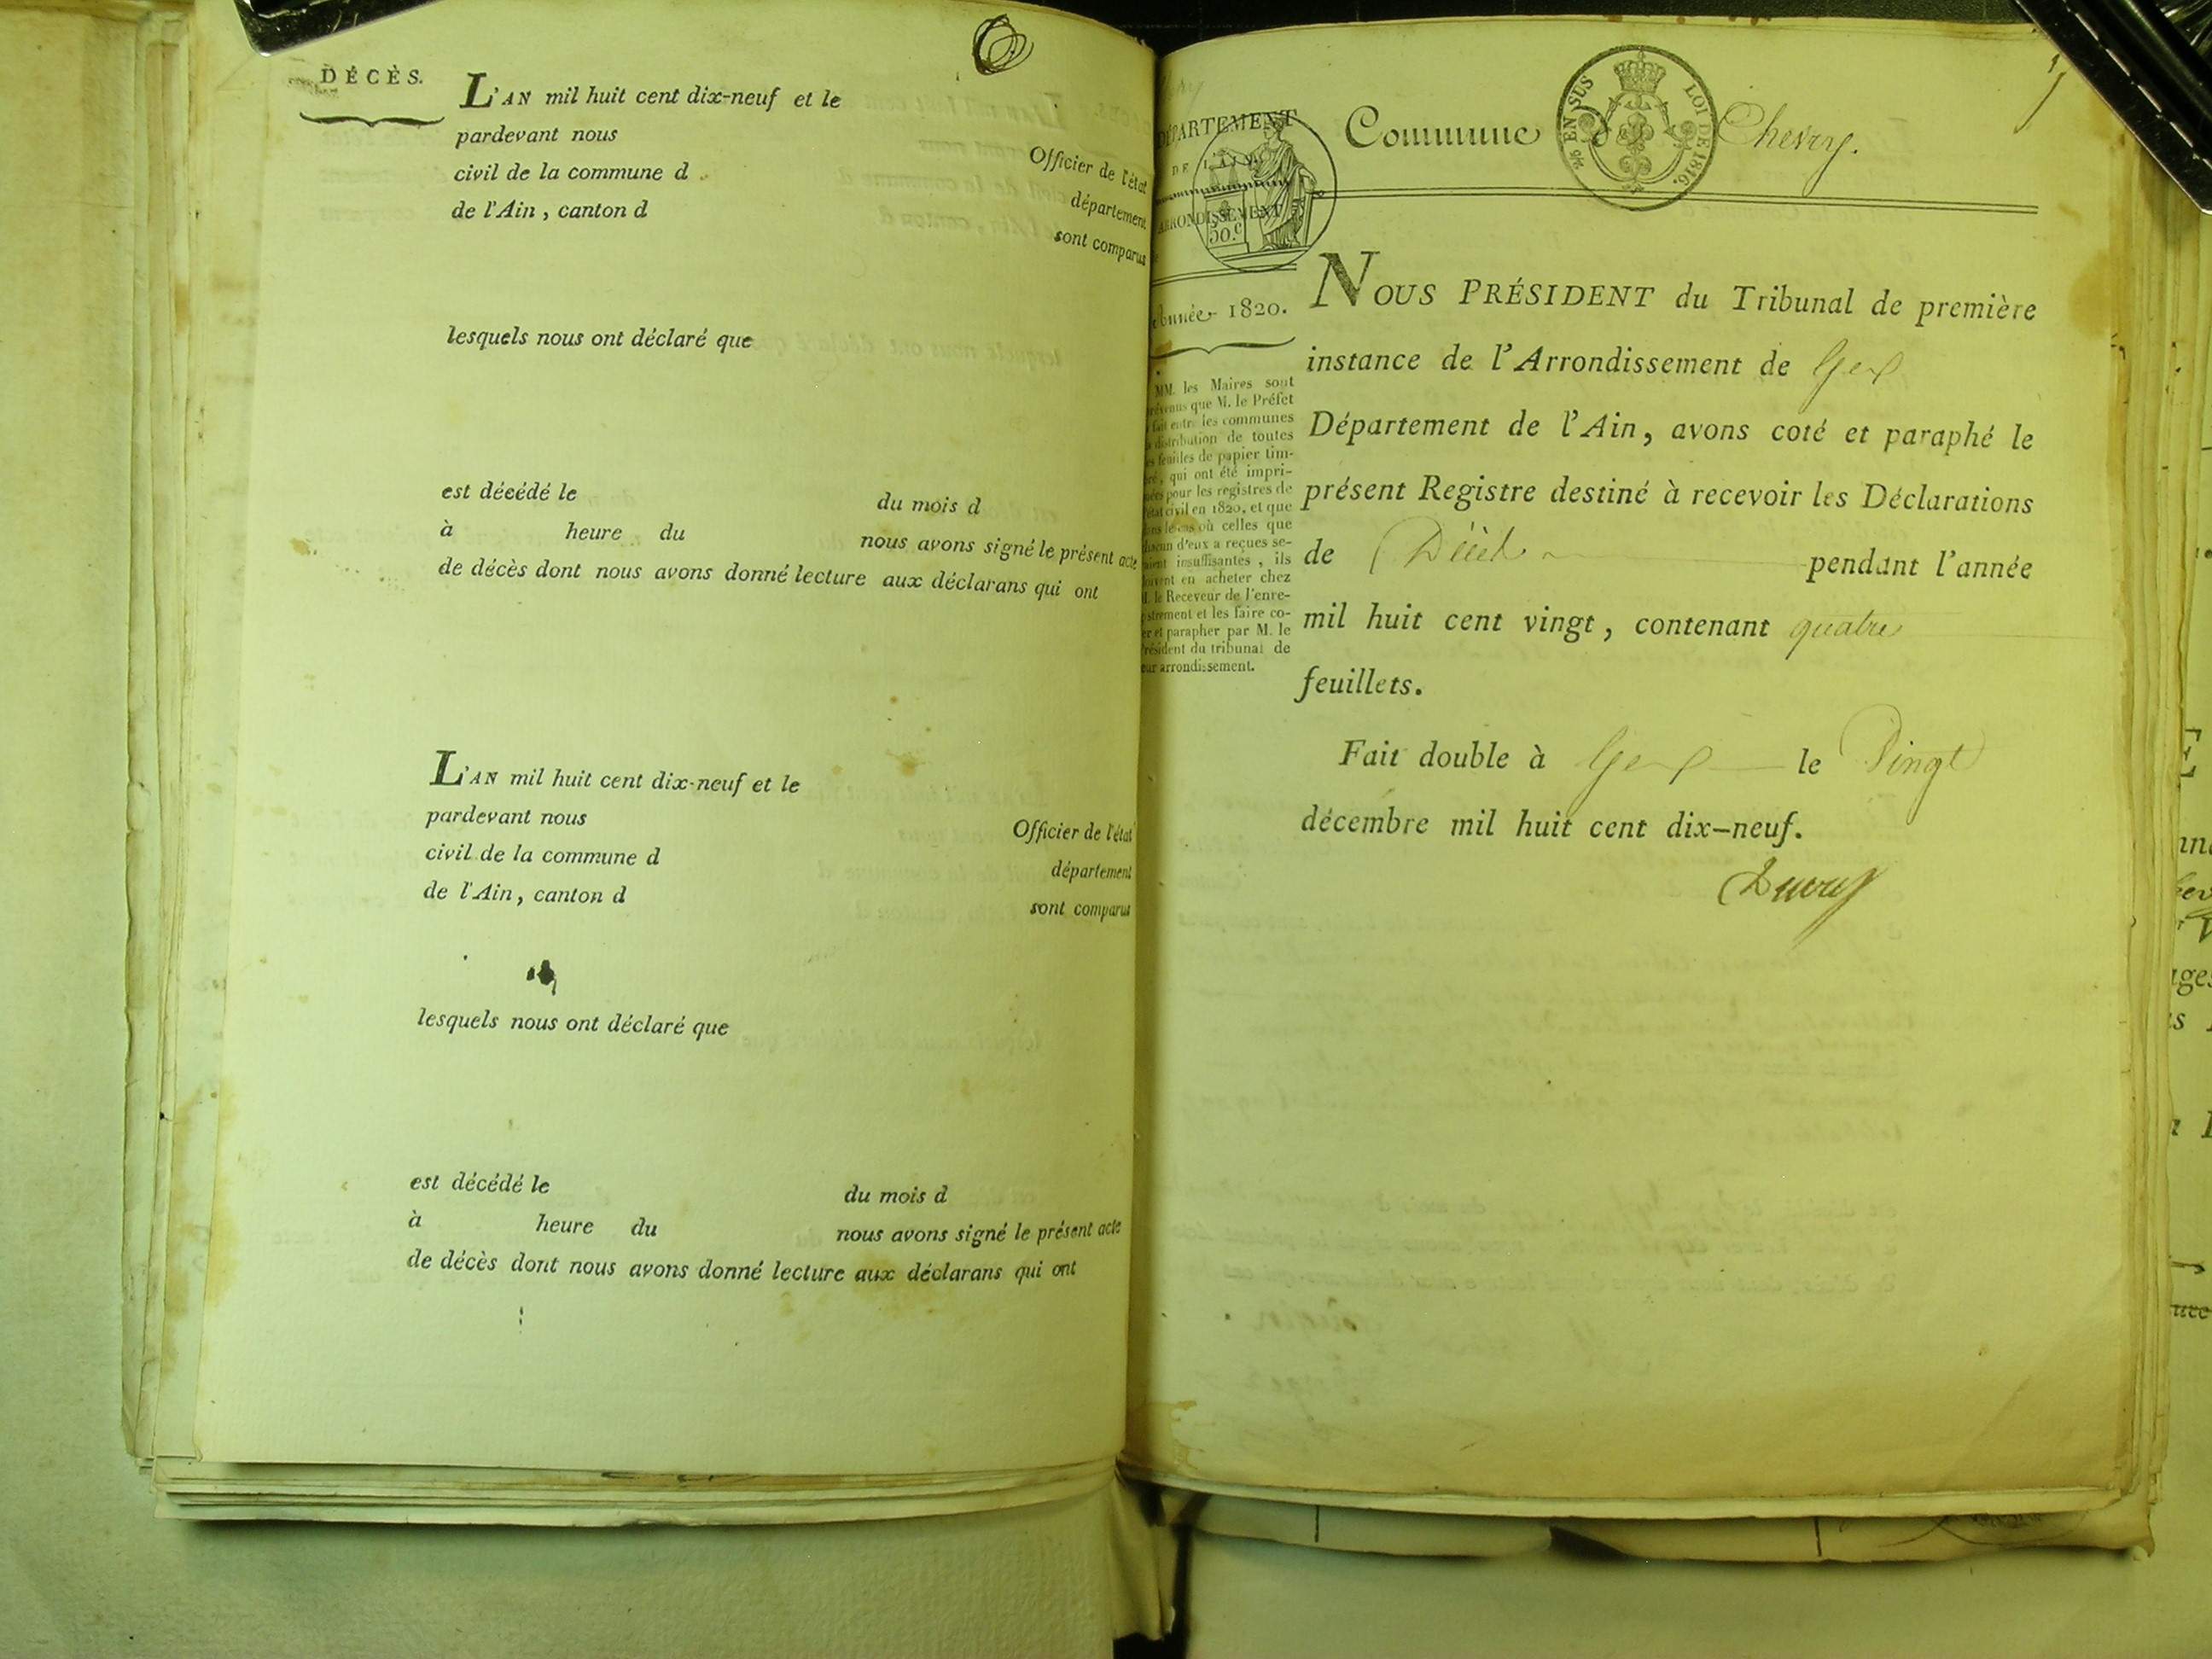 DÉCÈS.
L'AN mil huit cent dix-neuf et le
pardevant nous Officier de l'état
civil de la commune d département
de l'Ain, canton d sont comparus
lesquels nous ont déclaré que
est décédé le du mois d
à heure du nous avons signé le présent acte
de décès dont nous avons donné lecture aux déclarans qui ont
L'AN mil huit cent dix-neuf et le
pardevant nous Officier de l'état
civil de la commune d département
de l'Ain, canton d sont comparus
lesquels nous ont déclaré que
est décédé le du mois d
à heure du nous avons signé le présent acte
de décès dont nous avons donné lecture aux déclarans qui ont
DÉPARTEMENT
DE L'AIN
ARRONDISSEMENT
50.c
Commune de Chevry.
EN SUS LOI DE 1816.
Année 1820.
MM. les Maires sont
prévenus que M. le Préfet
a fait entre les communes
la distribution de toutes
les feuilles de papier tim-
bré, qui ont été impri-
mées pour les registres de
l'état civil en 1820, et que
dans le cas où celles que
chacun d'eux a reçues se-
raient insuffisantes, ils
doivent en acheter chez
M. le Receveur de l'enre-
gistrement et les faire co-
ter et parapher par M. le
Président du tribunal de
leur arrondissement.
NOUS PRÉSIDENT du Tribunal de première
instance de l'Arrondissement de Gex
Département de l'Ain, avons coté et paraphé le
présent Registre destiné à recevoir les Déclarations
de Décès pendant l'année
mil huit cent vingt, contenant quatre
feuillets.
Fait double à Gex le Vingt
décembre mil huit cent dix-neuf.